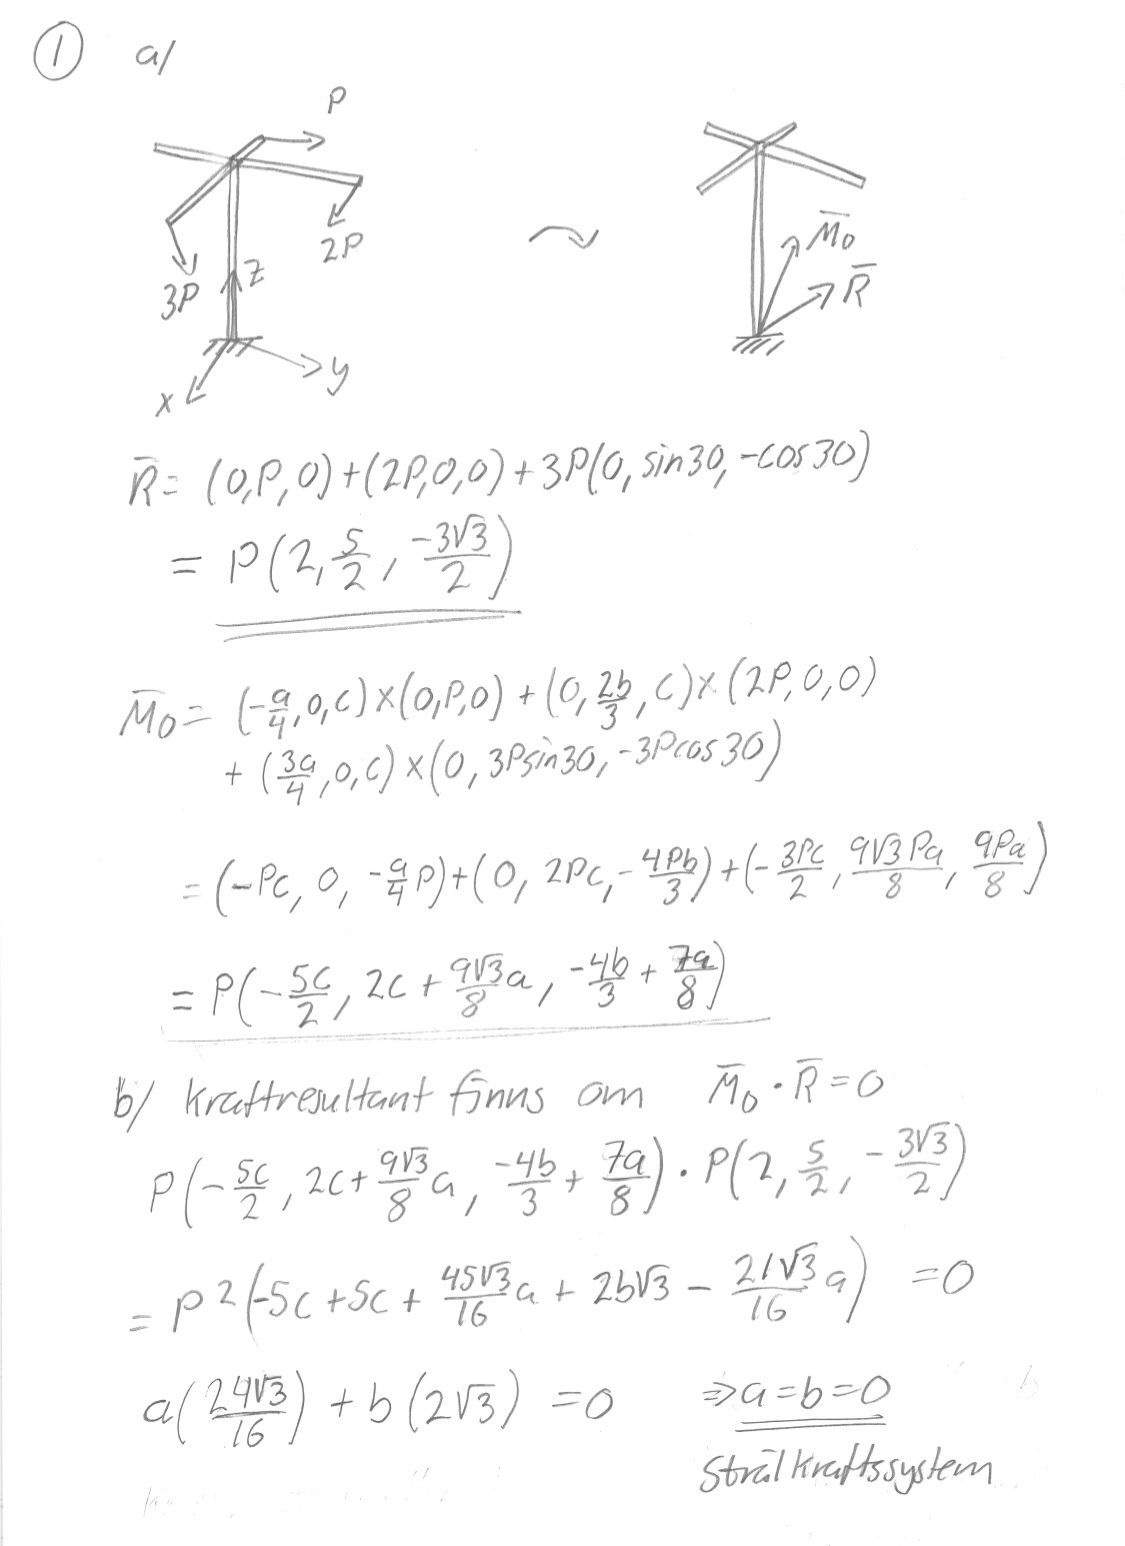 ① a/
P
2P
3P
z
y
x
~
M̄₀
R̄
R̄ = (0,P,0)+(2P,0,0)+3P(0, sin30, -cos30)
= P(2, 5/2, -3√3/2)
M̄₀ = (-a/4,0,c)×(0,P,0) + (0, 2b/3, c)×(2P,0,0)
+ (3a/4,0,c)×(0, 3Psin30, -3Pcos30)
= (-Pc, 0, -a/4 P)+(0, 2Pc, -4Pb/3)+(-3Pc/2, 9√3Pa/8, 9Pa/8)
= P(-5c/2, 2c + 9√3/8 a, -4b/3 + 7a/8)
b/ kraftresultant finns om M̄₀ · R̄ = 0
P(-5c/2, 2c+9√3/8 a, -4b/3 + 7a/8) · P(2, 5/2, -3√3/2)
= P²(-5c+5c+ 45√3/16 a + 2b√3 - 21√3/16 a) = 0
a(24√3/16) + b(2√3) = 0 ⇒ a=b=0
Strålkraftssystem